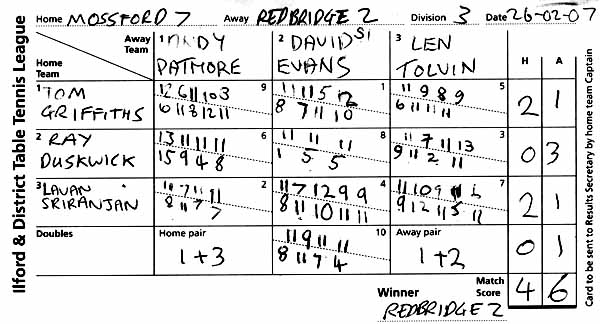 Ilford & District Table Tennis League
Home MOSSFORD 7 Away REDBRIDGE 2 Division 3 Date 26-02-07
Away Team
Home Team
1 ANDY PATMORE
2 DAVID EVANS
3 LEN TOLVIN
H A
1 TOM GRIFFITHS
9
12 6 11 10 3
6 11 8 12 11
1
11 11 5 12
8 7 11 10
5
11 9 8 9
6 11 11 11
2 1
2 RAY DUSKWICK
6
13 11 11 11
15 9 4 8
8
11 11 11
1 5 5
3
11 7 11 13
9 11 2 11
0 3
3 LAVAN SRIRANJAN
2
11 7 11 11
8 11 7 7
4
11 7 12 9 9
8 11 10 11 11
7
11 10 9
9 12 11 5 11
2 1
Doubles
Home pair
1+3
10
11 9 11 11
8 11 7 4
Away pair
1+2
0 1
Winner REDBRIDGE 2
Match Score 4 6
Card to be sent to Results Secretary by home team Captain